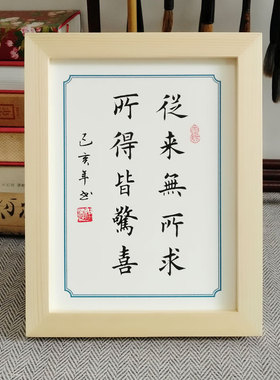 従来無所求
所得皆驚喜
己亥年书